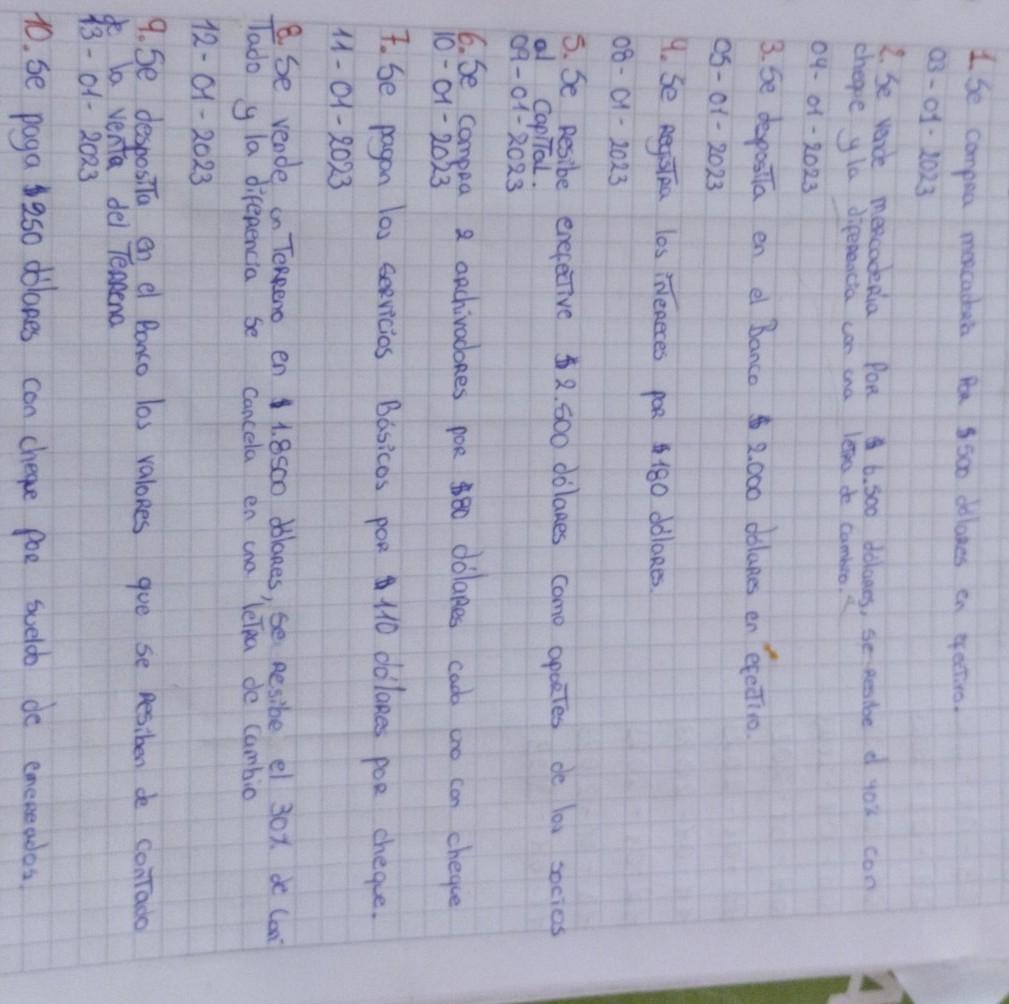 1. Se compra mercaderia Por $500 dólares en efectivo.
03-01-2023
2. Se vende mercadería Por $ 6.500 dólares, se resibe el 40% con
cheque y la diferencia con una letra de cambio.
04-01-2023
3. Se desposita en el Banco $ 2.000 dólares en efectivo.
05-01-2023
4. Se registra los intereces por $180 dólares.
08-01-2023
5. Se resibe enefective $2.500 dólares como aportes de los socios
al Capital.
09-01-2023
6. Se compra 2 archivadores por $80 dólares cada uno con cheque
10-01-2023
7. Se pagan los servicios Básicos por $110 dólares por cheque.
11-01-2023
8. Se vende un Terreno en $ 1.8500 dólares, se resibe el 30% de con
Tado y la diferencia se cancela en una letra de cambio
12-01-2023
9. Se desposita en el Banco los valores que se resiben de conTado
de la venta del Terreno
13-01-2023
10. Se paga $250 dólares con cheque por sueldo de empleados.